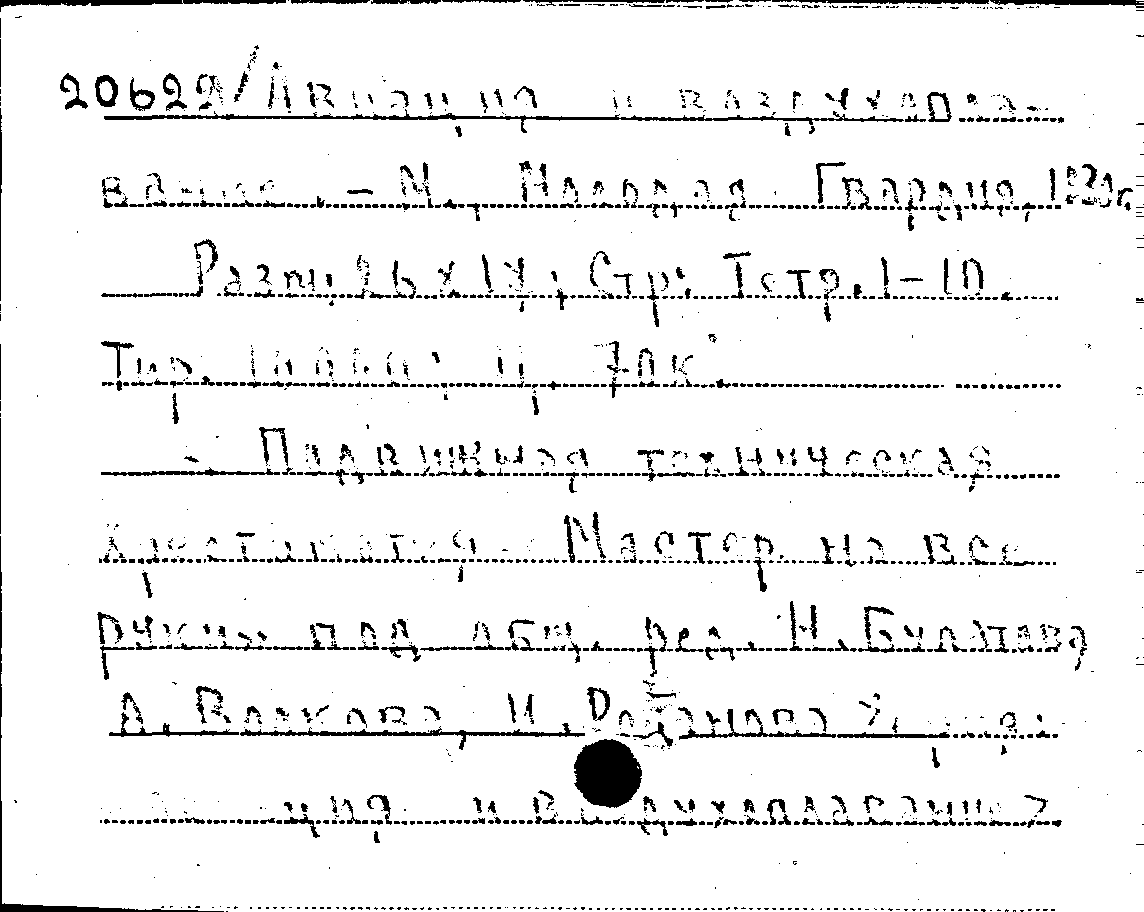 20622/Авиация и воздухопла-
вание. - М., Молодая Гвардия,
Разм: 26 х 17; Стр: Тетр. 1-10.
Тир. 10000; Ц. 70к.
Подвижная техническая
хрестоматия Мастер на все
руки под общ. ред. Н. Булатова
А. Волкова, И.
и воздухоплавание>